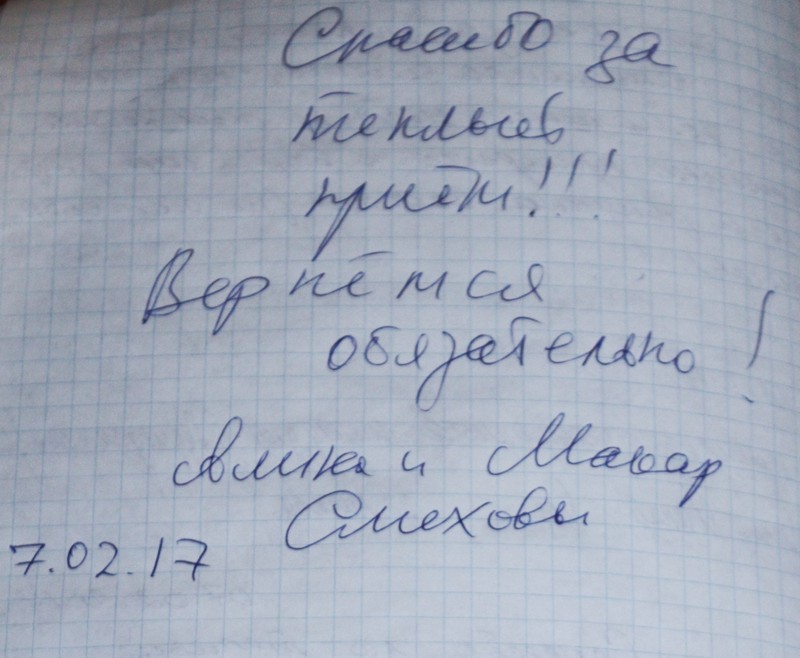 Спасибо за
теплый
приём!!!
Вернёмся
обязательно!
Алина и Макар
Смеховы
7.02.17